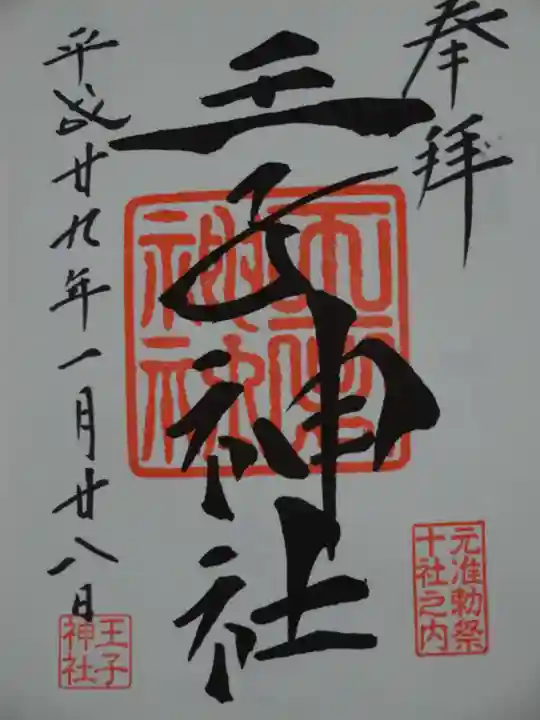 奉拝
元准勅祭
十社之内
王子神社
平成廿九年一月廿八日
王子
神社